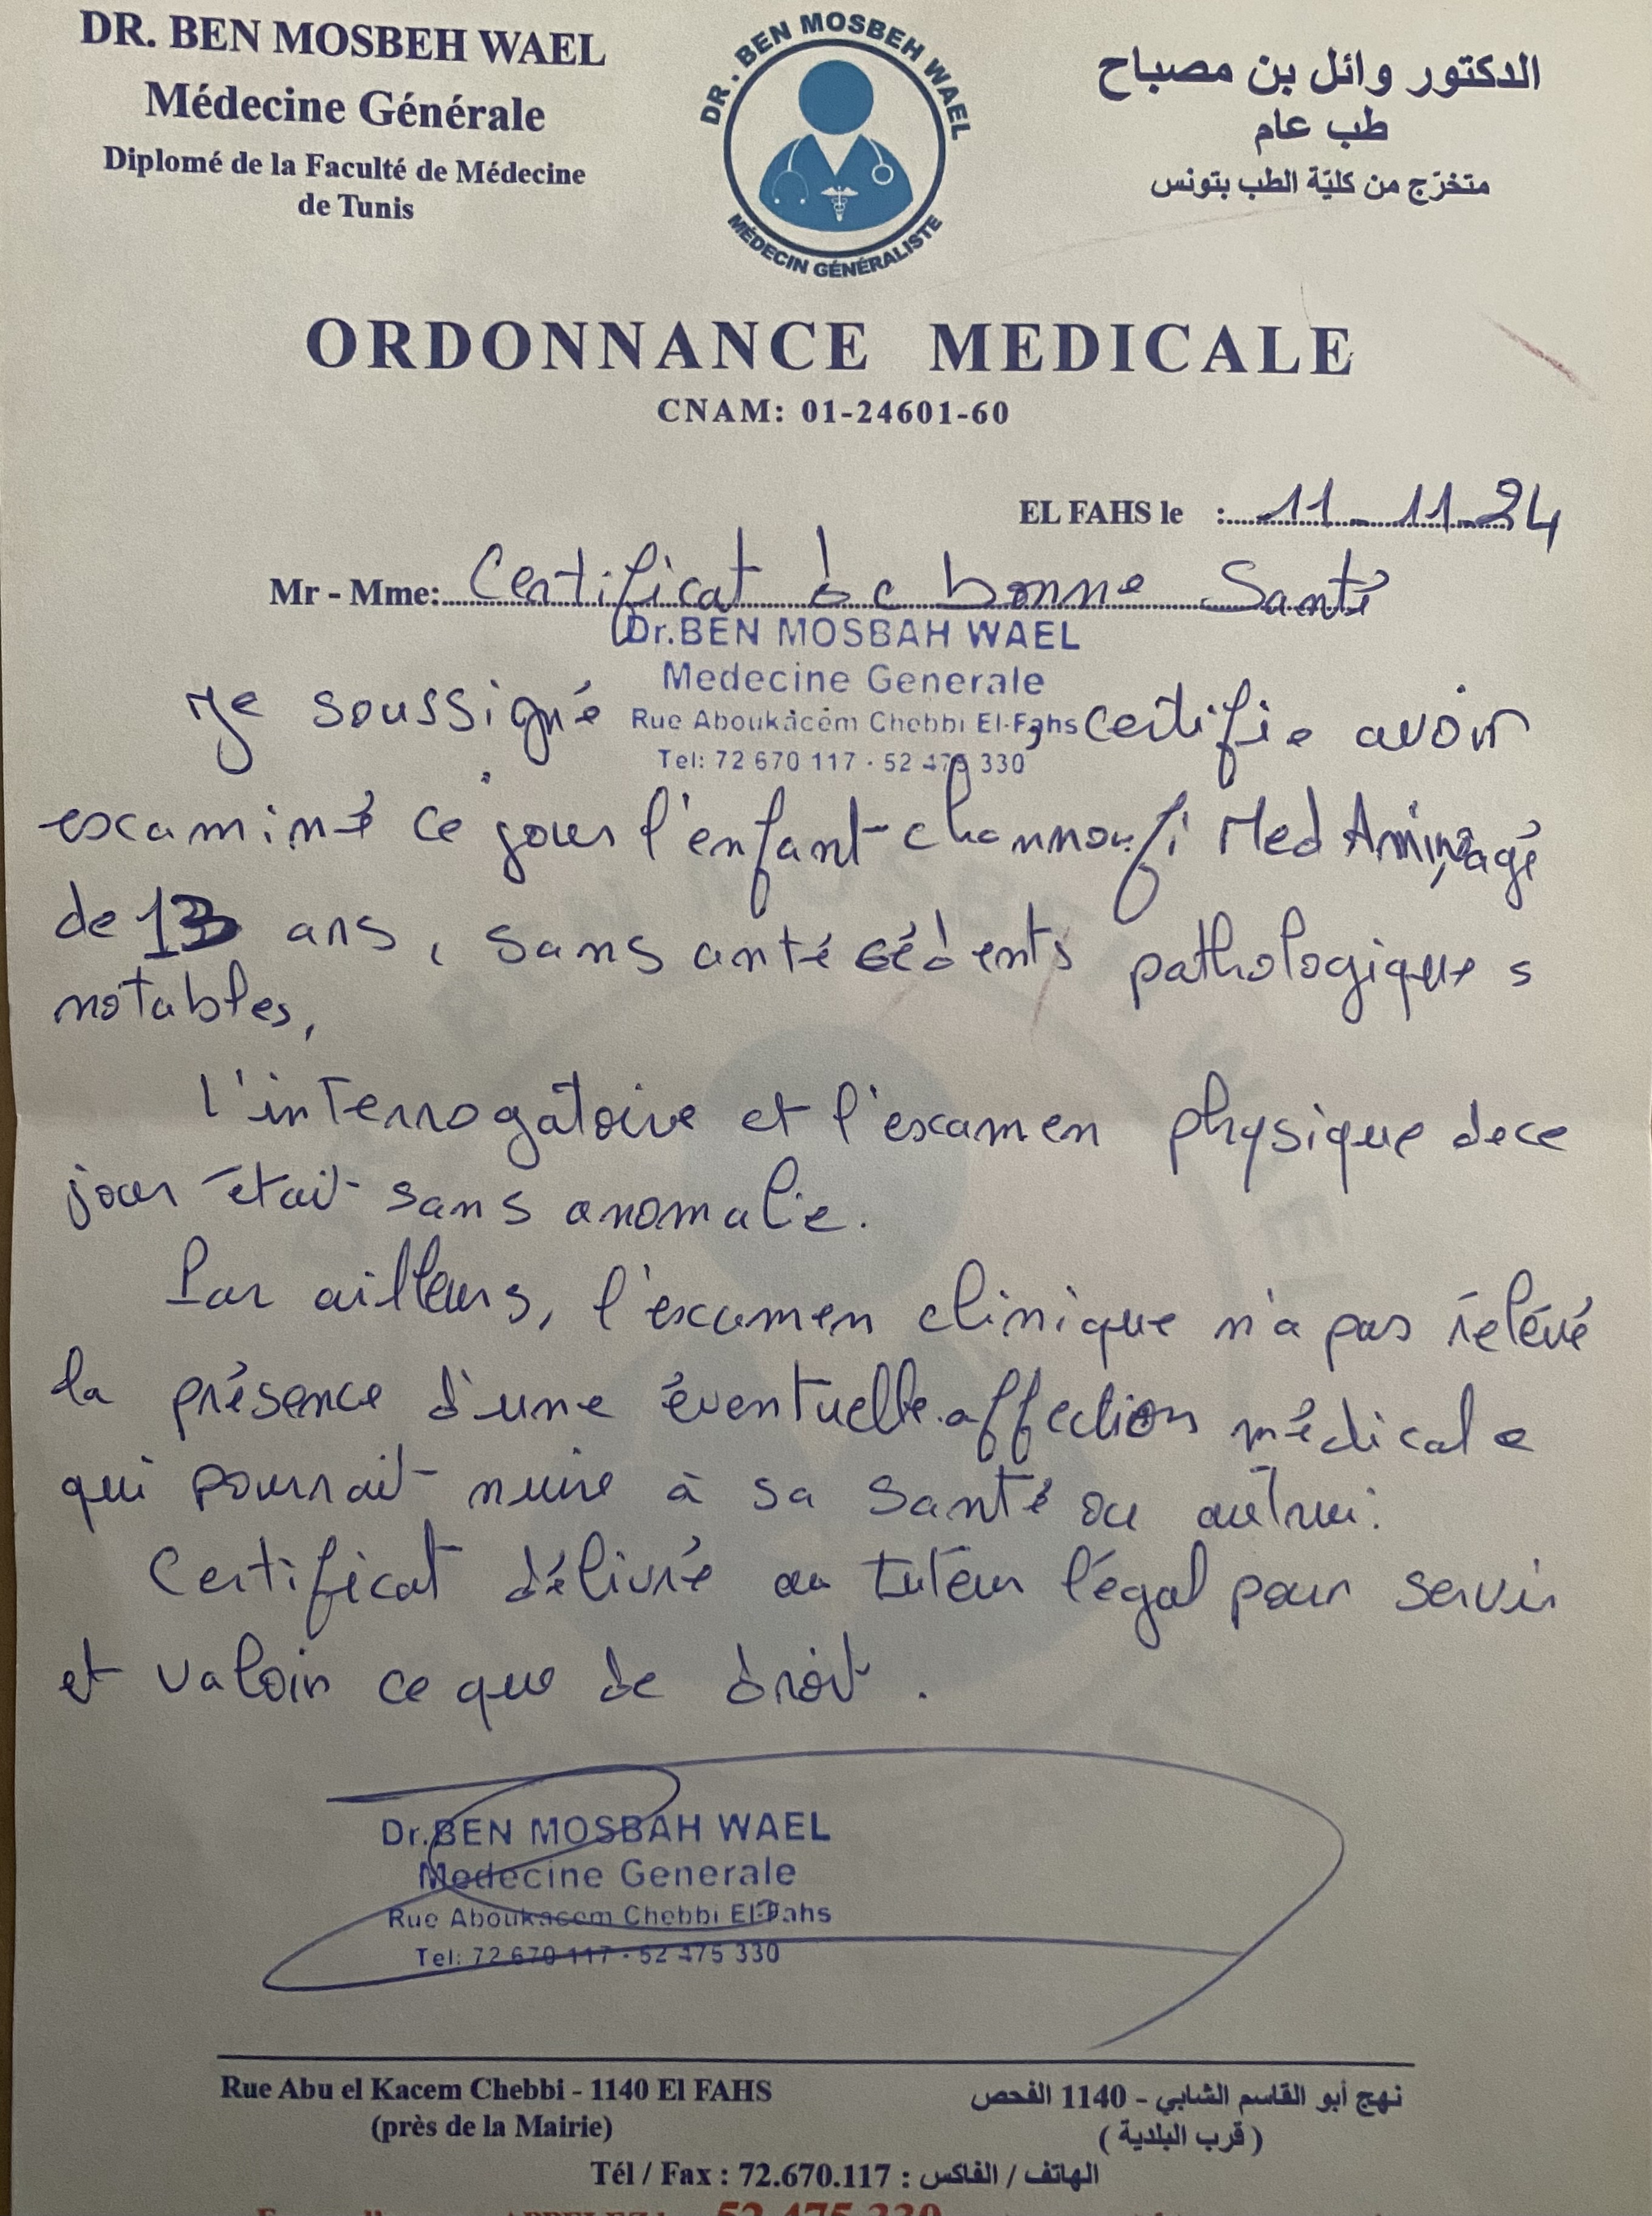 DR. BEN MOSBEH WAEL
Médecine Générale
Diplomé de la Faculté de Médecine
de Tunis
DR. BEN MOSBEH WAEL
MÉDECIN GÉNÉRALISTE
الدكتور وائل بن مصباح
طب عام
متخرّج من كليّة الطب بتونس
ORDONNANCE MEDICALE
CNAM: 01-24601-60
EL FAHS le : 11-11-24
Mr - Mme: Certificat de bonne Santé
Dr.BEN MOSBAH WAEL
Medecine Generale
Rue Aboukacem Chebbi El-Fahs
Tel: 72 670 117 - 52 475 330
Je soussigné , certifie avoir
examiné ce jour l'enfant channoufi Med Amine, agé
de 13 ans, sans antécédents pathologiques
notables,
l'interrogatoire et l'examen physique de ce
jour était sans anomalie.
Par ailleurs, l'examen clinique n'a pas rélévé
la présence d'une éventuelle affection médicale
qui pourrait nuire à sa santé ou autrui.
Certificat délivré au tuteur légal pour servir
et valoir ce que de droit.
Dr.BEN MOSBAH WAEL
Medecine Generale
Rue Aboukacem Chebbi El-Fahs
Tel: 72 670 117 - 52 475 330
Rue Abu el Kacem Chebbi - 1140 El FAHS
(près de la Mairie)
نهج أبو القاسم الشابي - 1140 الفحص
( قرب البلدية )
Tél / Fax : 72.670.117 : الهاتف / الفاكس
52 475 330